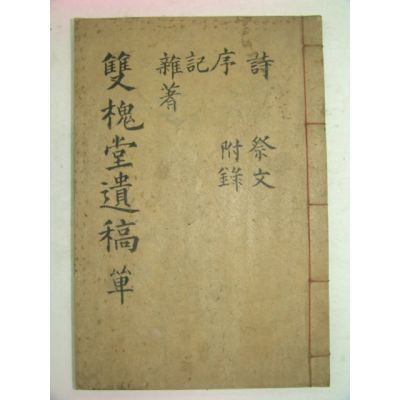 詩 祭文
序 附錄
記
雜著
雙槐堂遺稿 單